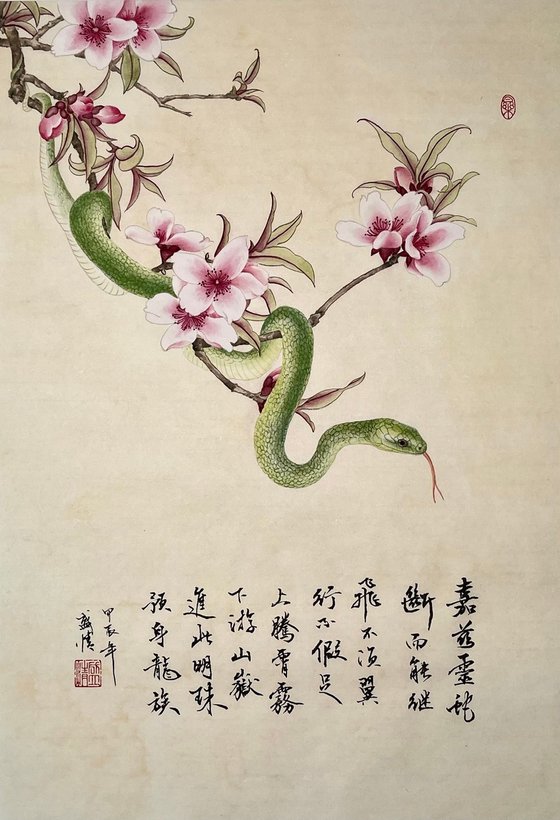 嘉兹靈虵
斷而能继
飛不须翼
行不假足
上騰霄霧
下游山嶽
進此明珠
預身龍族
甲辰年